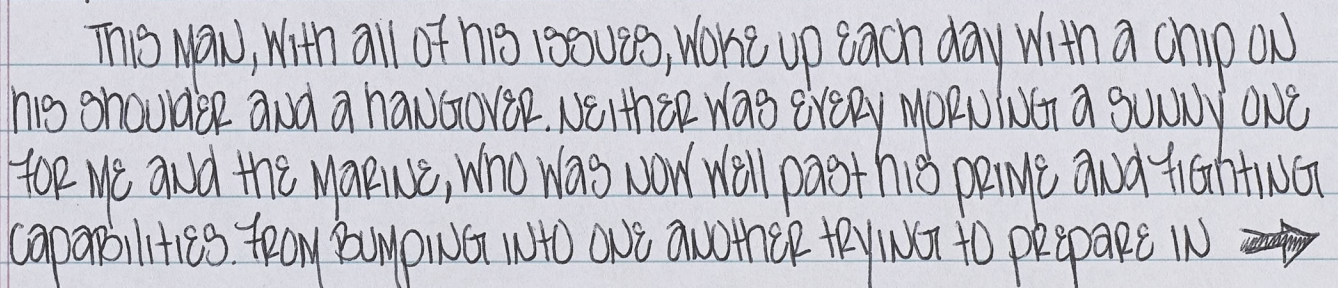 This man, with all of his issues, woke up each day with a chip on
his shoulder and a hangover. Neither was every morning a sunny one
for me and the Marine, who was now well past his prime and fighting
capabilities. From bumping into one another trying to prepare in →